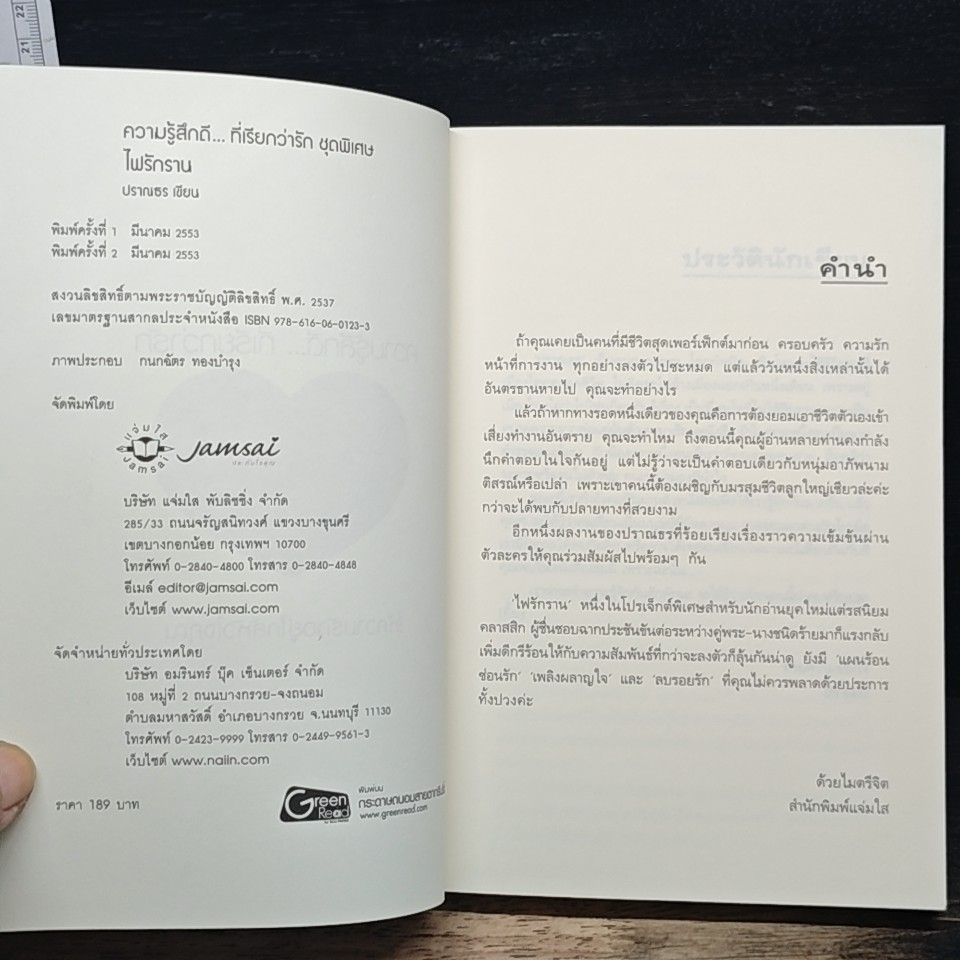 22
21
ความรู้สึกดี... ที่เรียกว่ารัก ชุดพิเศษ
ไฟรักราน
ปราณธร เขียน
พิมพ์ครั้งที่ 1 มีนาคม 2553
พิมพ์ครั้งที่ 2 มีนาคม 2553
สงวนลิขสิทธิ์ตามพระราชบัญญัติลิขสิทธิ์ พ.ศ. 2537
เลขมาตรฐานสากลประจำหนังสือ ISBN 978-616-06-0123-3
ภาพประกอบ กนกฉัตร ทองบำรุง
จัดพิมพ์โดย
แจ่มใส
Jamsai
Jamsai
บริษัท แจ่มใส พับลิชชิ่ง จำกัด
285/33 ถนนจรัญสนิทวงศ์ แขวงบางขุนศรี
เขตบางกอกน้อย กรุงเทพฯ 10700
โทรศัพท์ 0-2840-4800 โทรสาร 0-2840-4848
อีเมล์ editor@jamsai.com
เว็บไซต์ www.jamsai.com
จัดจำหน่ายทั่วประเทศโดย
บริษัท อมรินทร์ บุ๊ค เซ็นเตอร์ จำกัด
108 หมู่ที่ 2 ถนนบางกรวย-จงถนอม
ตำบลมหาสวัสดิ์ อำเภอบางกรวย จ.นนทบุรี 11130
โทรศัพท์ 0-2423-9999 โทรสาร 0-2449-9561-3
เว็บไซต์ www.naiin.com
ราคา 189 บาท
Green Read
พิมพ์บน
กระดาษถนอมสายตากรีนรี้ด
www.greenread.com
คำนำ
ถ้าคุณเคยเป็นคนที่มีชีวิตสุดเพอร์เฟ็กต์มาก่อน ครอบครัว ความรัก
หน้าที่การงาน ทุกอย่างลงตัวไปซะหมด แต่แล้ววันหนึ่งสิ่งเหล่านั้นได้
อันตรธานหายไป คุณจะทำอย่างไร
แล้วถ้าหากทางรอดหนึ่งเดียวของคุณคือการต้องยอมเอาชีวิตตัวเองเข้า
เสี่ยงทำงานอันตราย คุณจะทำไหม ถึงตอนนี้คุณผู้อ่านหลายท่านคงกำลัง
นึกคำตอบในใจกันอยู่ แต่ไม่รู้ว่าจะเป็นคำตอบเดียวกับหนุ่มอาภัพนาม
ติสรณ์หรือเปล่า เพราะเขาคนนี้ต้องเผชิญกับมรสุมชีวิตลูกใหญ่เชียวล่ะค่ะ
กว่าจะได้พบกับปลายทางที่สวยงาม
อีกหนึ่งผลงานของปราณธรที่ร้อยเรียงเรื่องราวความเข้มข้นผ่าน
ตัวละครให้คุณร่วมสัมผัสไปพร้อมๆ กัน
'ไฟรักราน' หนึ่งในโปรเจ็กต์พิเศษสำหรับนักอ่านยุคใหม่แต่รสนิยม
คลาสสิก ผู้ชื่นชอบฉากประชันขันต่อระหว่างคู่พระ-นางชนิดร้ายมาก็แรงกลับ
เพิ่มดีกรีร้อนให้กับความสัมพันธ์ที่กว่าจะลงตัวก็ลุ้นกันน่าดู ยังมี 'แผนร้อน
ซ่อนรัก' 'เพลิงผลาญใจ' และ 'ลบรอยรัก' ที่คุณไม่ควรพลาดด้วยประการ
ทั้งปวงค่ะ
ด้วยไมตรีจิต
สำนักพิมพ์แจ่มใส